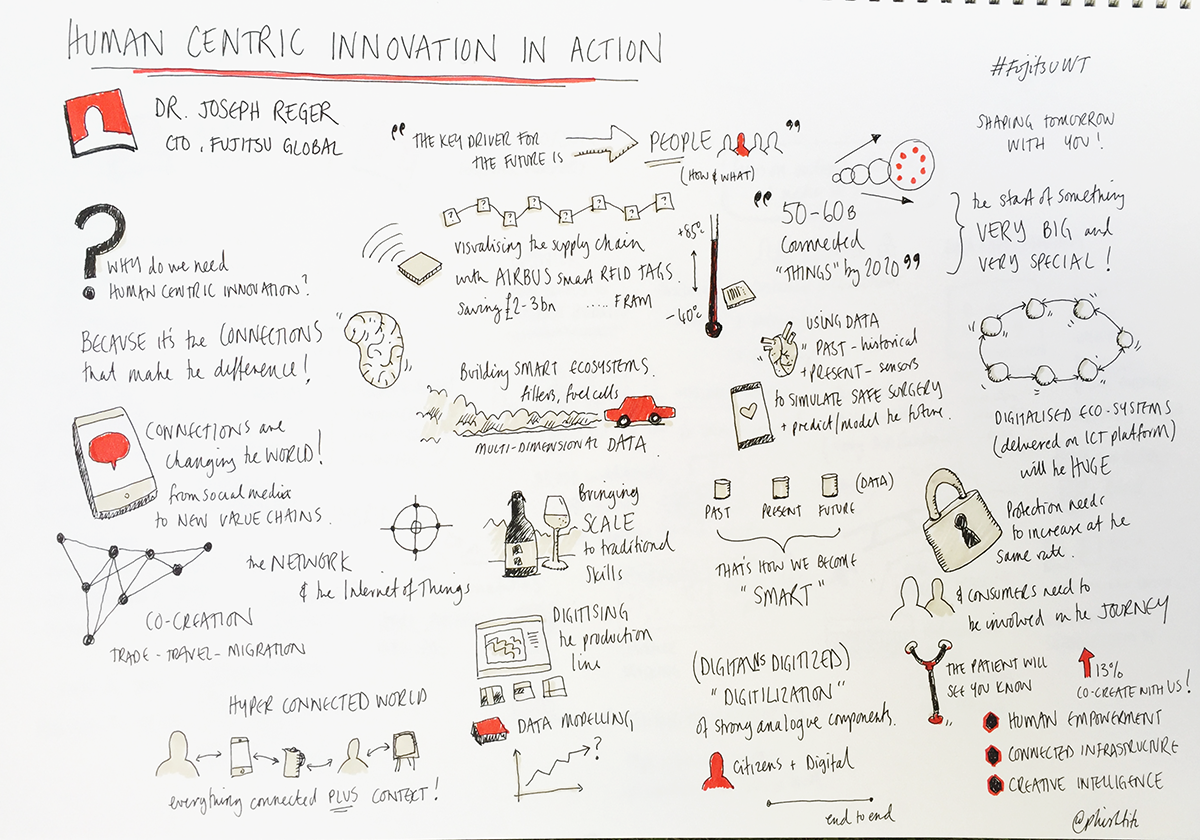 HUMAN CENTRIC INNOVATION IN ACTION
#FUJITSUWT
DR. JOSEPH REGER
CTO, FUJITSU GLOBAL
"THE KEY DRIVER FOR
THE FUTURE IS
PEOPLE"
(HOW & WHAT)
SHAPING TOMORROW
WITH YOU!
? WHY do we need
HUMAN CENTRIC INNOVATION?
BECAUSE it's the CONNECTIONS
that make the difference!
CONNECTIONS are
changing the WORLD!
from social media
to NEW VALUE CHAINS.
the NETWORK
& the Internet of Things
CO-CREATION
TRADE - TRAVEL - MIGRATION
HYPER CONNECTED WORLD
everything connected PLUS CONTEXT!
? ? ? ? ? ? ? ?
visualising the supply chain
with AIRBUS smart RFID TAGS.
saving £2-3bn ..... FRAM
+85°
-40°
Building SMART ECOSYSTEMS.
filters, fuel cells
MULTI-DIMENSIONAL DATA.
Bringing
SCALE
to traditional
skills
DIGITISING
the production
line
DATA MODELLING,
?
"50-60B
connected
"THINGS" by 2020"
the start of something
VERY BIG and
VERY SPECIAL!
USING DATA
" PAST - historical
+ PRESENT - sensors
to SIMULATE SAFE SURGERY
+ predict/model the future.
PAST PRESENT FUTURE (DATA)
THAT'S HOW WE BECOME
"SMART"
"DIGITILIZATION"
of strong analogue components.
Citizens + Digital
end to end
DIGITALISED ECO-SYSTEMS
(delivered on ICT platform)
will be HUGE
Protection needs
to increase at the
same rate.
& CONSUMERS need to
be involved in the JOURNEY
THE PATIENT WILL
SEE YOU KNOW
13%
CO-CREATE WITH US!
HUMAN EMPOWERMENT
CONNECTED INFRASTRUCTURE
CREATIVE INTELLIGENCE